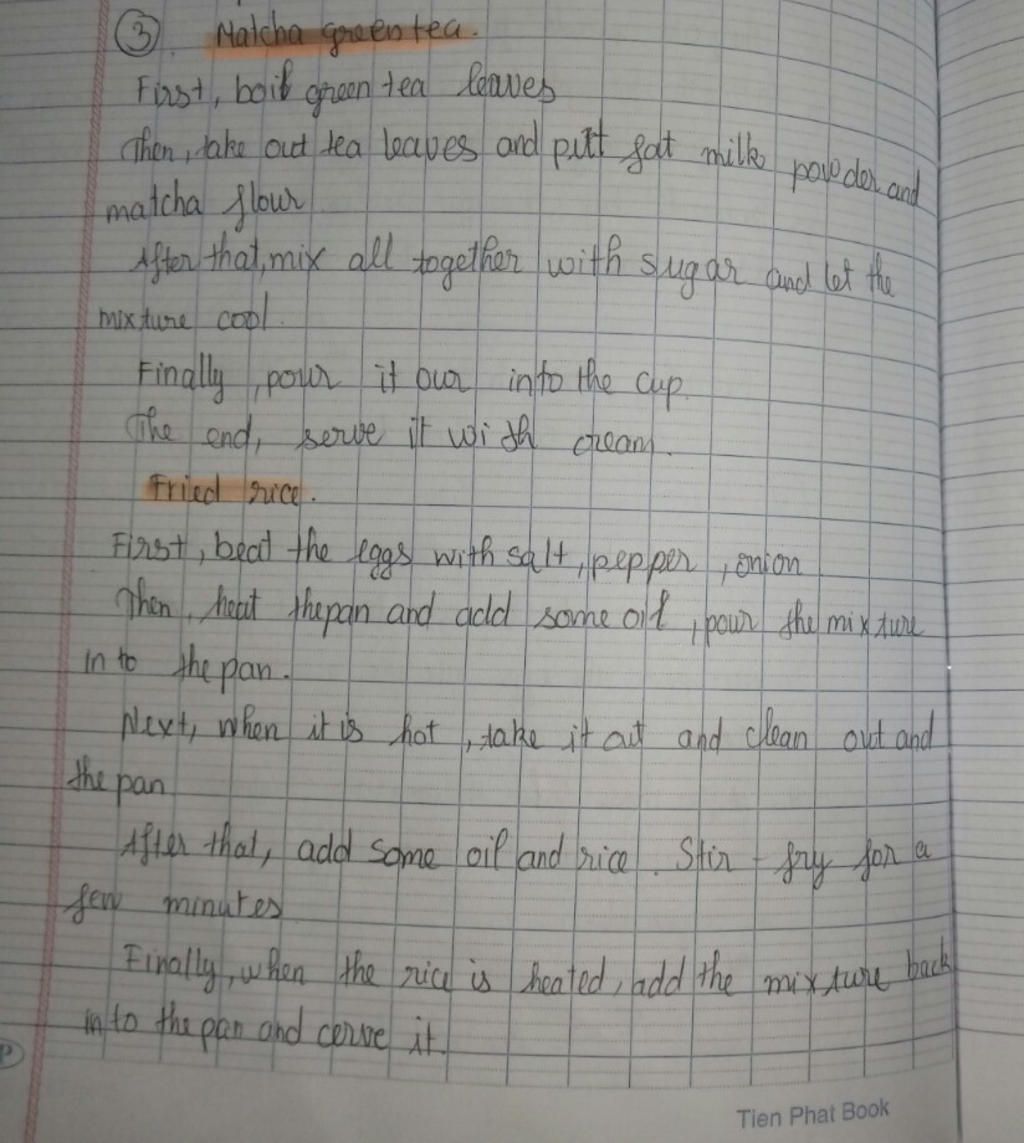 ③. Matcha green tea.
First, boil green tea leaves
Then, take out tea leaves and putt fat milk powder and
matcha flour
After that, mix all together with sugar and let the
mixture cool.
Finally, pour it our into the cup.
The end, serve it with cream.
Fried rice.
First, beat the eggs with salt, pepper, onion
Then, heat the pan and add some oil, pour the mixture
in to the pan.
Next, when it is hot, take it out and clean out and
the pan
After that, add some oil and rice. Stir - fry for a
few minutes
Finally, when the rice is heated, add the mixture back
in to the pan and cerve it.
Tien Phat Book